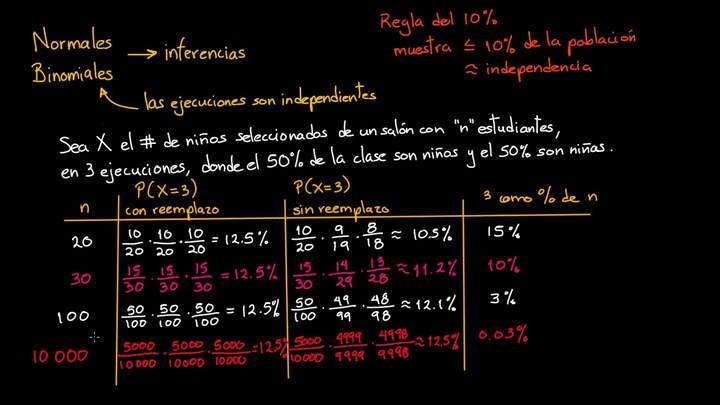 Normales
Binomiales
→ inferencias
las ejecuciones son independientes
Regla del 10%
muestra ≤ 10% de la población
≈ independencia
Sea X el # de niños seleccionados de un salón con "n" estudiantes,
en 3 ejecuciones, donde el 50% de la clase son niños y el 50% son niñas.
n | P(X=3) con reemplazo | P(X=3) sin reemplazo | 3 como % de n
20 | 10/20 · 10/20 · 10/20 = 12.5% | 10/20 · 9/19 · 8/18 ≈ 10.5% | 15%
30 | 15/30 · 15/30 · 15/30 = 12.5% | 15/30 · 14/29 · 13/28 ≈ 11.2% | 10%
100 | 50/100 · 50/100 · 50/100 = 12.5% | 50/100 · 49/99 · 48/98 ≈ 12.1% | 3%
10 000 | 5000/10000 · 5000/10000 · 5000/10000 = 12.5% | 5000/10000 · 4999/9999 · 4998/9998 ≈ 12.5% | 0.03%